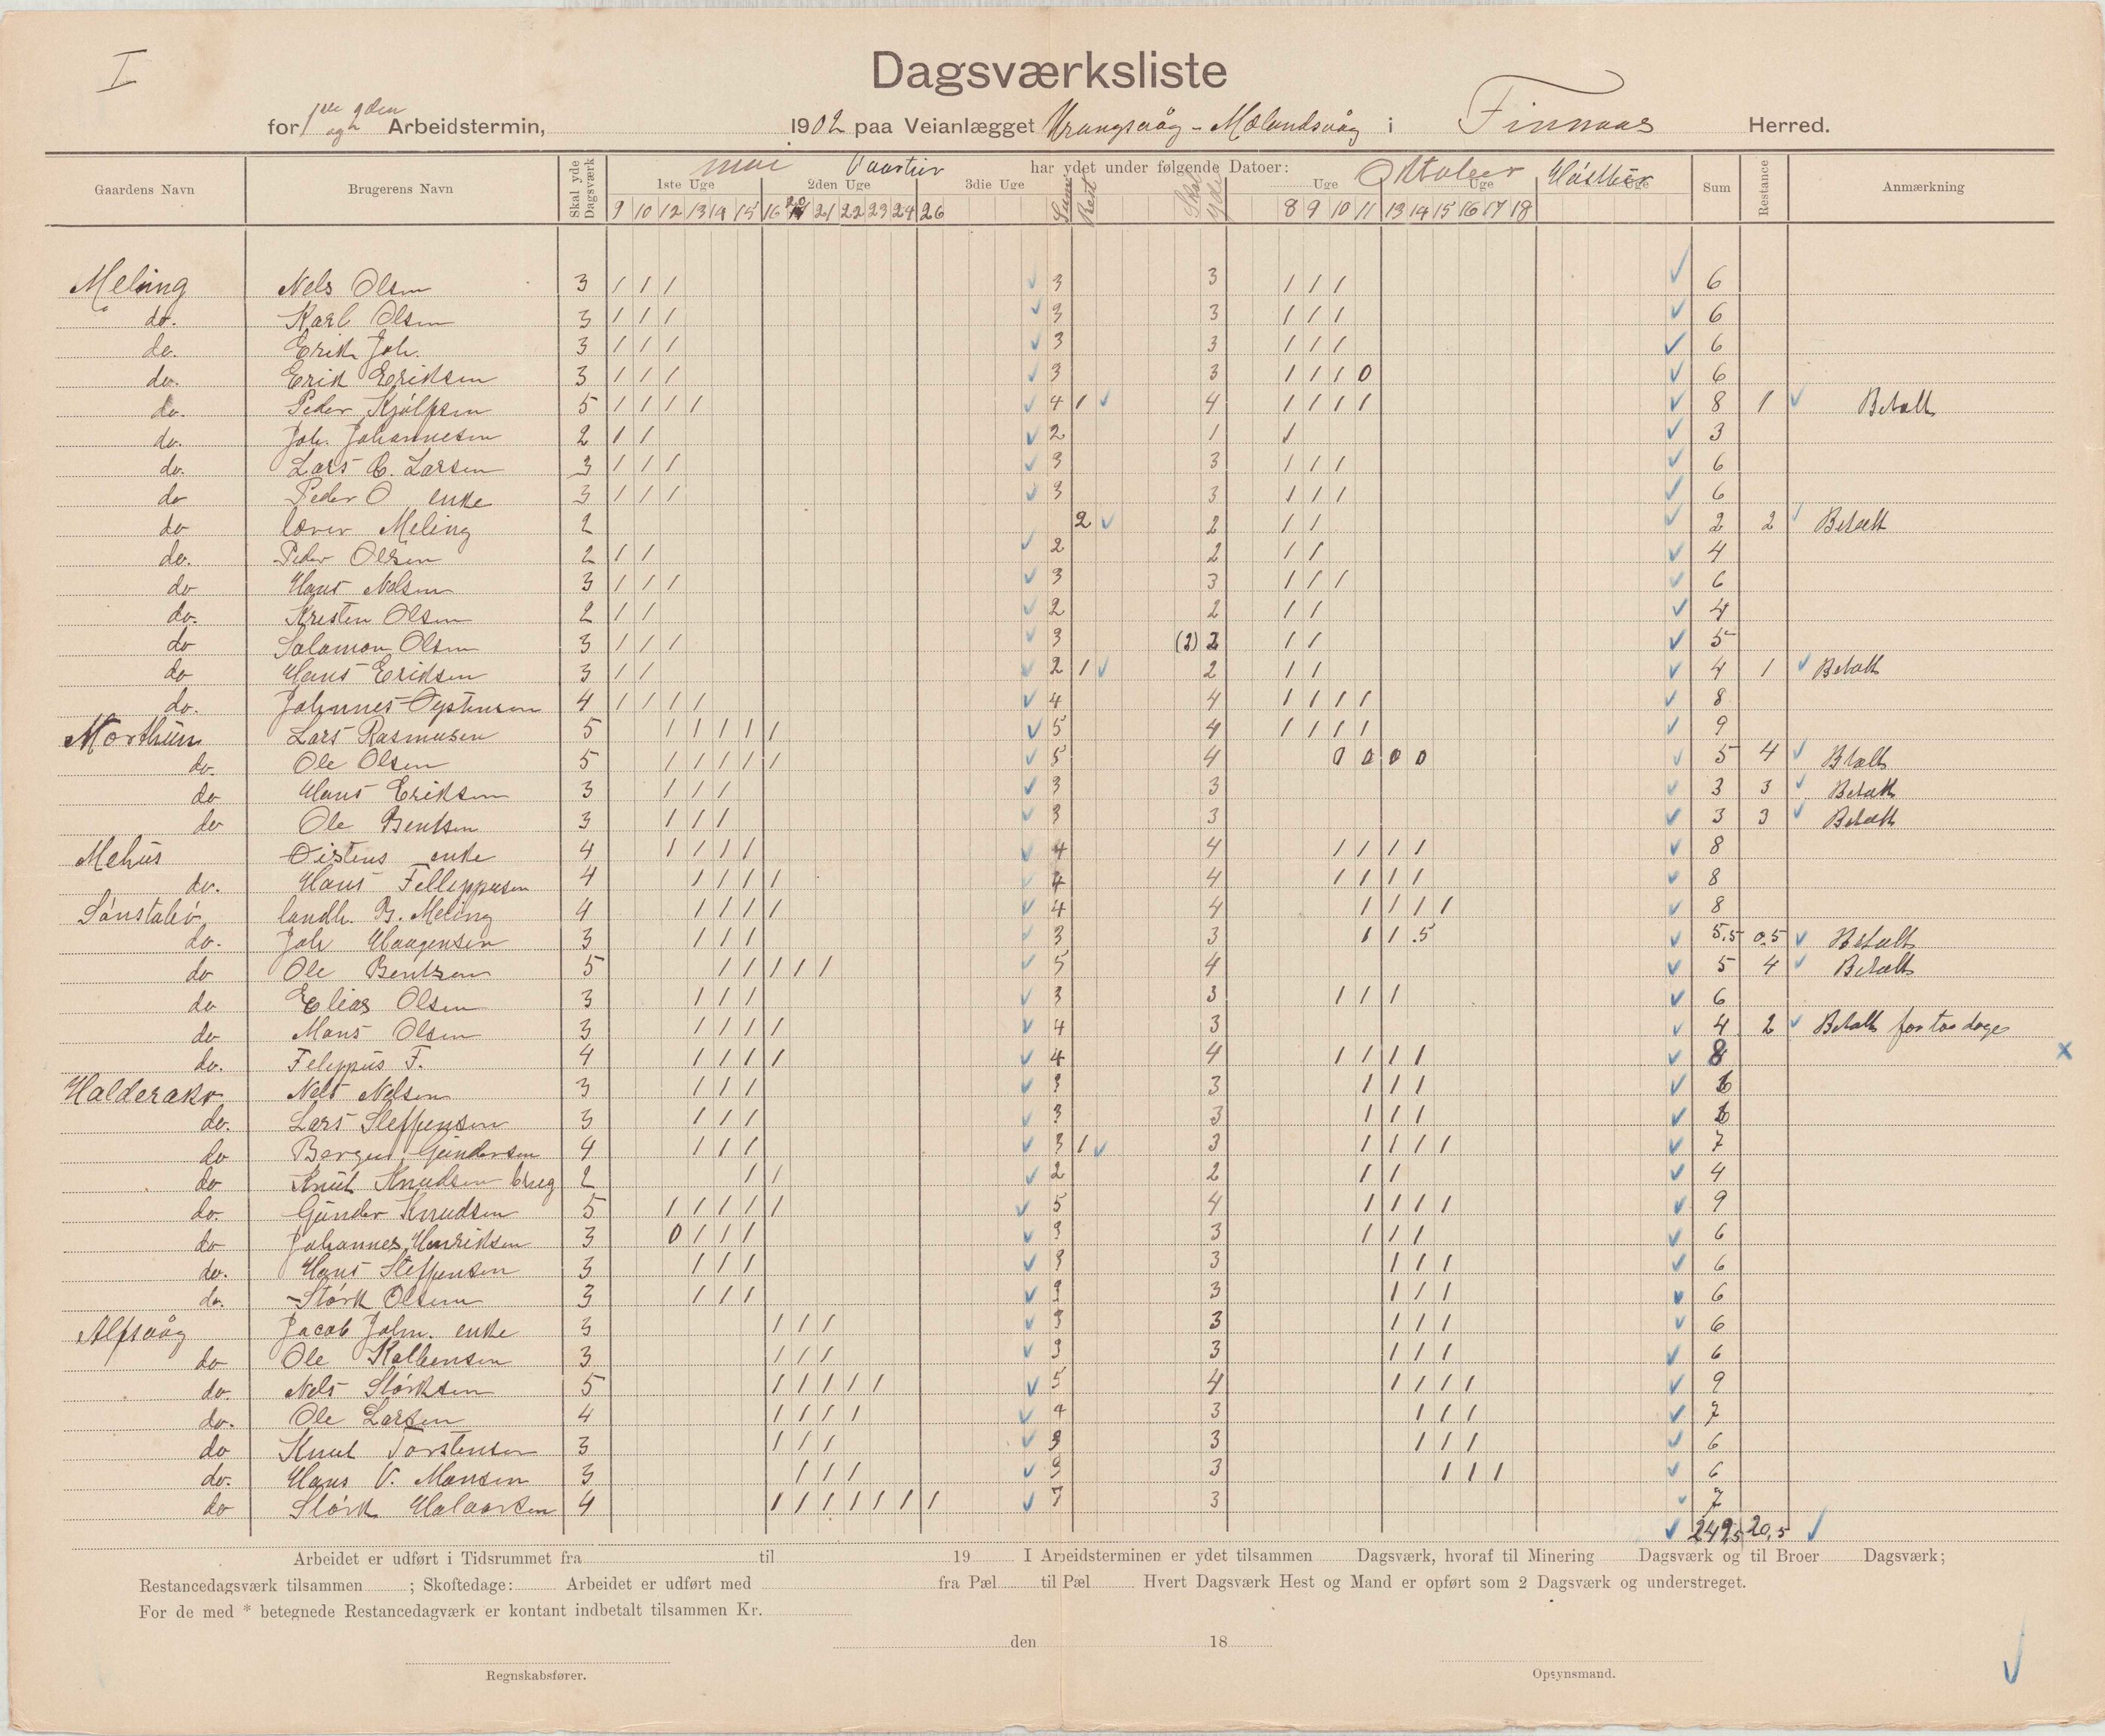 I
Dagsværksliste
for 1ste og 2den Arbeidstermin, 1902 paa Veianlægget Urangsvåg - Mælandsvåg i Finnaas Herred.
Gaardens Navn Brugerens Navn Skal yde Dagsværk mai Vaartier har ydet under følgende Datoer: Oktober Høstber Sum Restance Anmærkning
1ste Uge 2den Uge 3die Uge Sum Rest Skal yde Uge Uge Uge
9 10 12 13 14 15 16 20 21 22 23 24 26 8 9 10 11 13 14 15 16 17 18
Meling Nels Olsen 3 / / / 3 3 / / / 6
do. Karl Olsen 3 / / / 3 3 / / / 6
do. Erik Joh. 3 / / / 3 3 / / / 6
do. Erik Eriksen 3 / / / 3 3 / / / 0 6
do. Peder Kjølfsen 5 / / / / 4 1 4 / / / / 8 1 Betalt
do. Joh. Johannesen 2 / / 2 1 / 3
do. Lars C. Larsen 3 / / / 3 3 / / / 6
do Peder O enke 3 / / / 3 3 / / / 6
do lærer Meling 2 2 2 / / 2 2 Betalt
do. Peder Olsen 2 / / 2 2 / / 4
do Hans Nelsen 3 / / / 3 3 / / / 6
do. Kristen Olsen 2 / / 2 2 / / 4
do Salamon Olsen 3 / / / 3 (2) 2 / / 5
do Hans Eriksen 3 / / 2 1 2 / / 4 1 Betalt
do. Johannes Oystensen 4 / / / / 4 4 / / / / 8
Morthun Lars Rasmusen 5 / / / / / 5 4 / / / / 9
do. Ole Olsen 5 / / / / / 5 4 0 0 0 0 5 4 Btalt
do Hans Eriksen 3 / / / 3 3 3 3 Betalt
do Ole Bentsen 3 / / / 3 3 3 3 Betalt
Mehus Oistens enke 4 / / / / 4 4 / / / / 8
do. Hans Fellippusen 4 / / / / 4 4 / / / / 8
Sønstabø landh. B. Meling 4 / / / / 4 4 / / / / 8
do. Joh Haagensen 3 / / / 3 3 / / .5 5.5 0.5 Betalt
do Ole Bentsen 5 / / / / / 5 4 5 4 Betalt
do Elias Olsen 3 / / / 3 3 / / / 6
do Mons Olsen 3 / / / / 4 3 4 2 Betalt for to dage
do. Felippus F. 4 / / / / 4 4 / / / / 8 x
Halderaker Nels Nelsen 3 / / / 3 3 / / / 6
do. Lars Steffensen 3 / / / 3 3 / / / 6
do Berges Gundersen 4 / / / 3 1 3 / / / / 7
do Knut Knudsen 2 / / 2 2 / / 4
do. Gunder Knudsen 5 / / / / / 5 4 / / / / 9
do Johannes Henriksen 3 0 / / / 3 3 / / / 6
do. Hans Steffensen 3 / / / 3 3 / / / 6
do. Størk Olsen 3 / / / 3 3 / / / 6
Alfsvåg Jacob John. enke 3 / / / 3 3 / / / 6
do Ole Kolbensen 3 / / / 3 3 / / / 6
do. Nels Størksen 5 / / / / / 5 4 / / / / 9
do. Ole Larsen 4 / / / / 4 3 / / / 7
do Knut Torstensen 3 / / / 3 3 / / / 6
do. Hans V. Monsen 3 / / / 3 3 / / / 6
do Størk Halvorsen 4 / / / / / / / 7 3 7
249,5 20,5
Arbeidet er udført i Tidsrummet fra til 19 I Arbeidsterminen er ydet tilsammen Dagsværk, hvoraf til Minering Dagsværk og til Broer Dagsværk;
Restancedagsværk tilsammen ; Skoftedage: Arbeidet er udført med fra Pæl til Pæl Hvert Dagsværk Hest og Mand er opført som 2 Dagsværk og understreget.
For de med * betegnede Restancedagværk er kontant indbetalt tilsammen Kr.
den 18
Regnskabsfører. Opsynsmand.